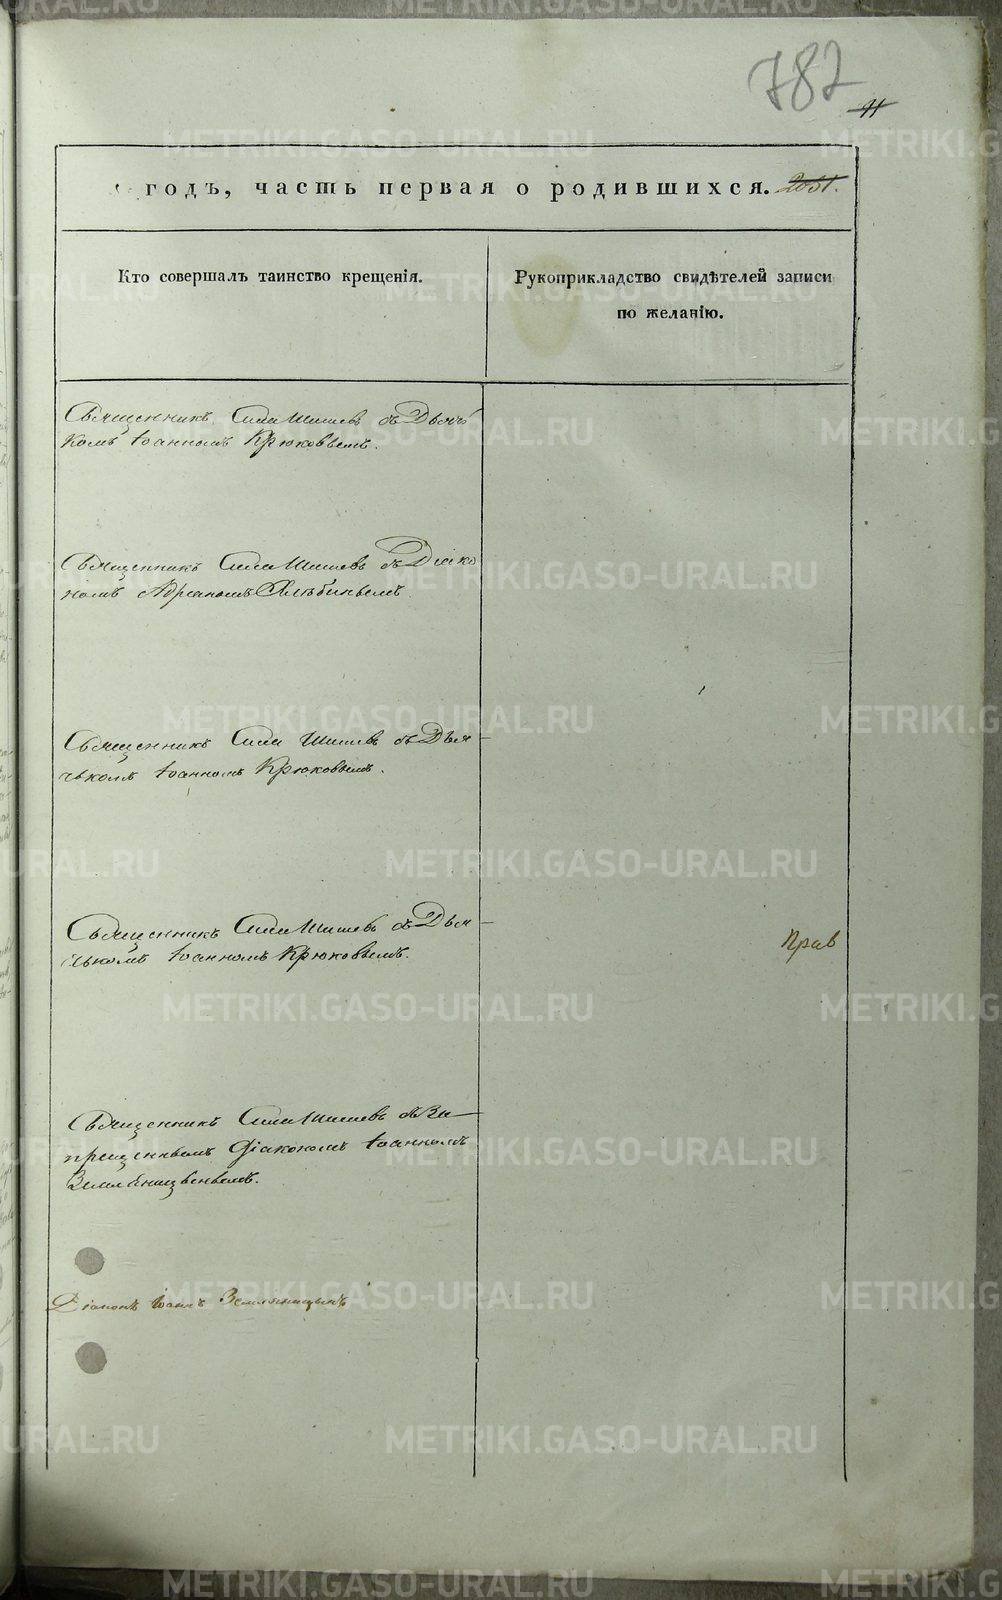 782
11
годъ, часть первая о родившихся. 2031.
Кто совершалъ таинство крещенія.
Рукоприкладство свидѣтелей записи
по желанію.
Священникъ Сила Шишевъ съ Дьячь
комъ Іоанномъ Крюковымъ.
Священникъ Сила Шишевъ съ Діако
номъ Адрианомъ Хлѣбинымъ.
Священникъ Сила Шишевъ съ Дья
чькомъ Іоанномъ Крюковымъ.
Священникъ Сила Шишевъ съ Дья
чькомъ Іоанномъ Крюковымъ.
Прав
Священникъ Сила Шишевъ съ За
прещеннымъ Діакономъ Іоанномъ
Діаконъ Іоаннъ Земляницынъ
METRIKI.GASO-URAL.RU